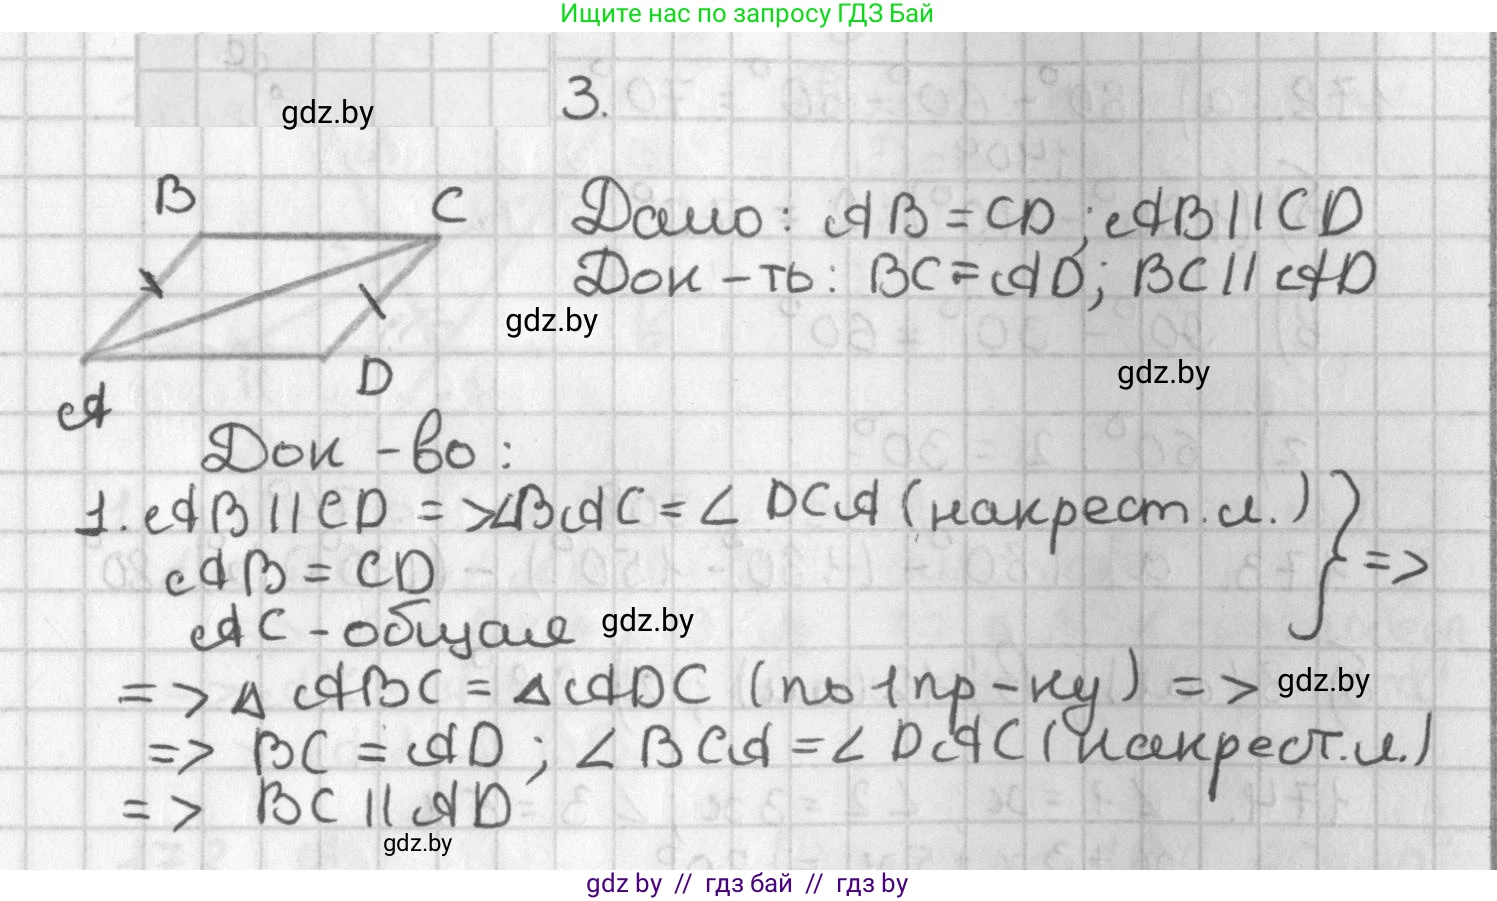 Ищите нас по запросу ГДЗ Бай
gdz.by
3.
B
C
Дано: AB = CD; AB || CD
Док-ть: BC = AD; BC || AD
gdz.by
gdz.by
D
A
Док-во:
1. AB || CD => ∠BAC = ∠DCA (накрест. л.)
AB = CD
} =>
AC - общая
gdz.by
=> △ ABC = △ ADC (по 1 пр-ку) =>
gdz.by
=> BC = AD; ∠BCA = ∠DAC (накрест. л.)
=> BC || AD
gdz.by
gdz by // гдз бай // гдз by